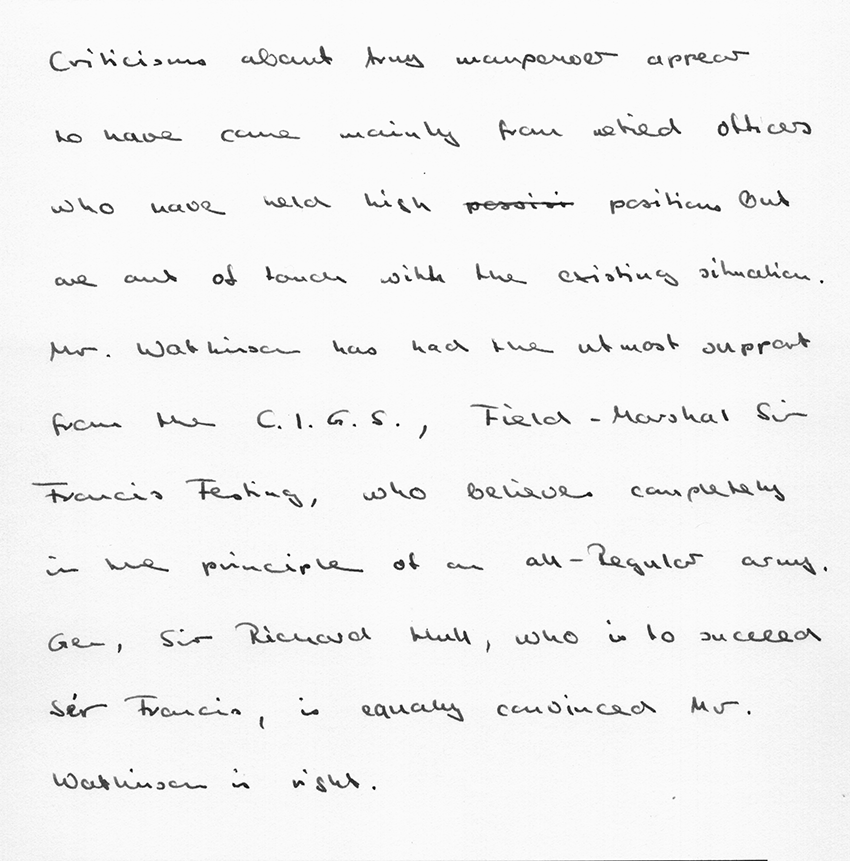 Criticisms about Army manpower appear
to have come mainly from retired officers
who have held high positions But
are out of touch with the existing situation.
Mr. Watkinson has had the utmost support
from the C.I.G.S., Field-Marshal Sir
Francis Festing, who believes completely
in the principle of an all-Regular army.
Gen, Sir Richard Hull, who is to succeed
Sir Francis, is equally convinced Mr.
Watkinson is right.